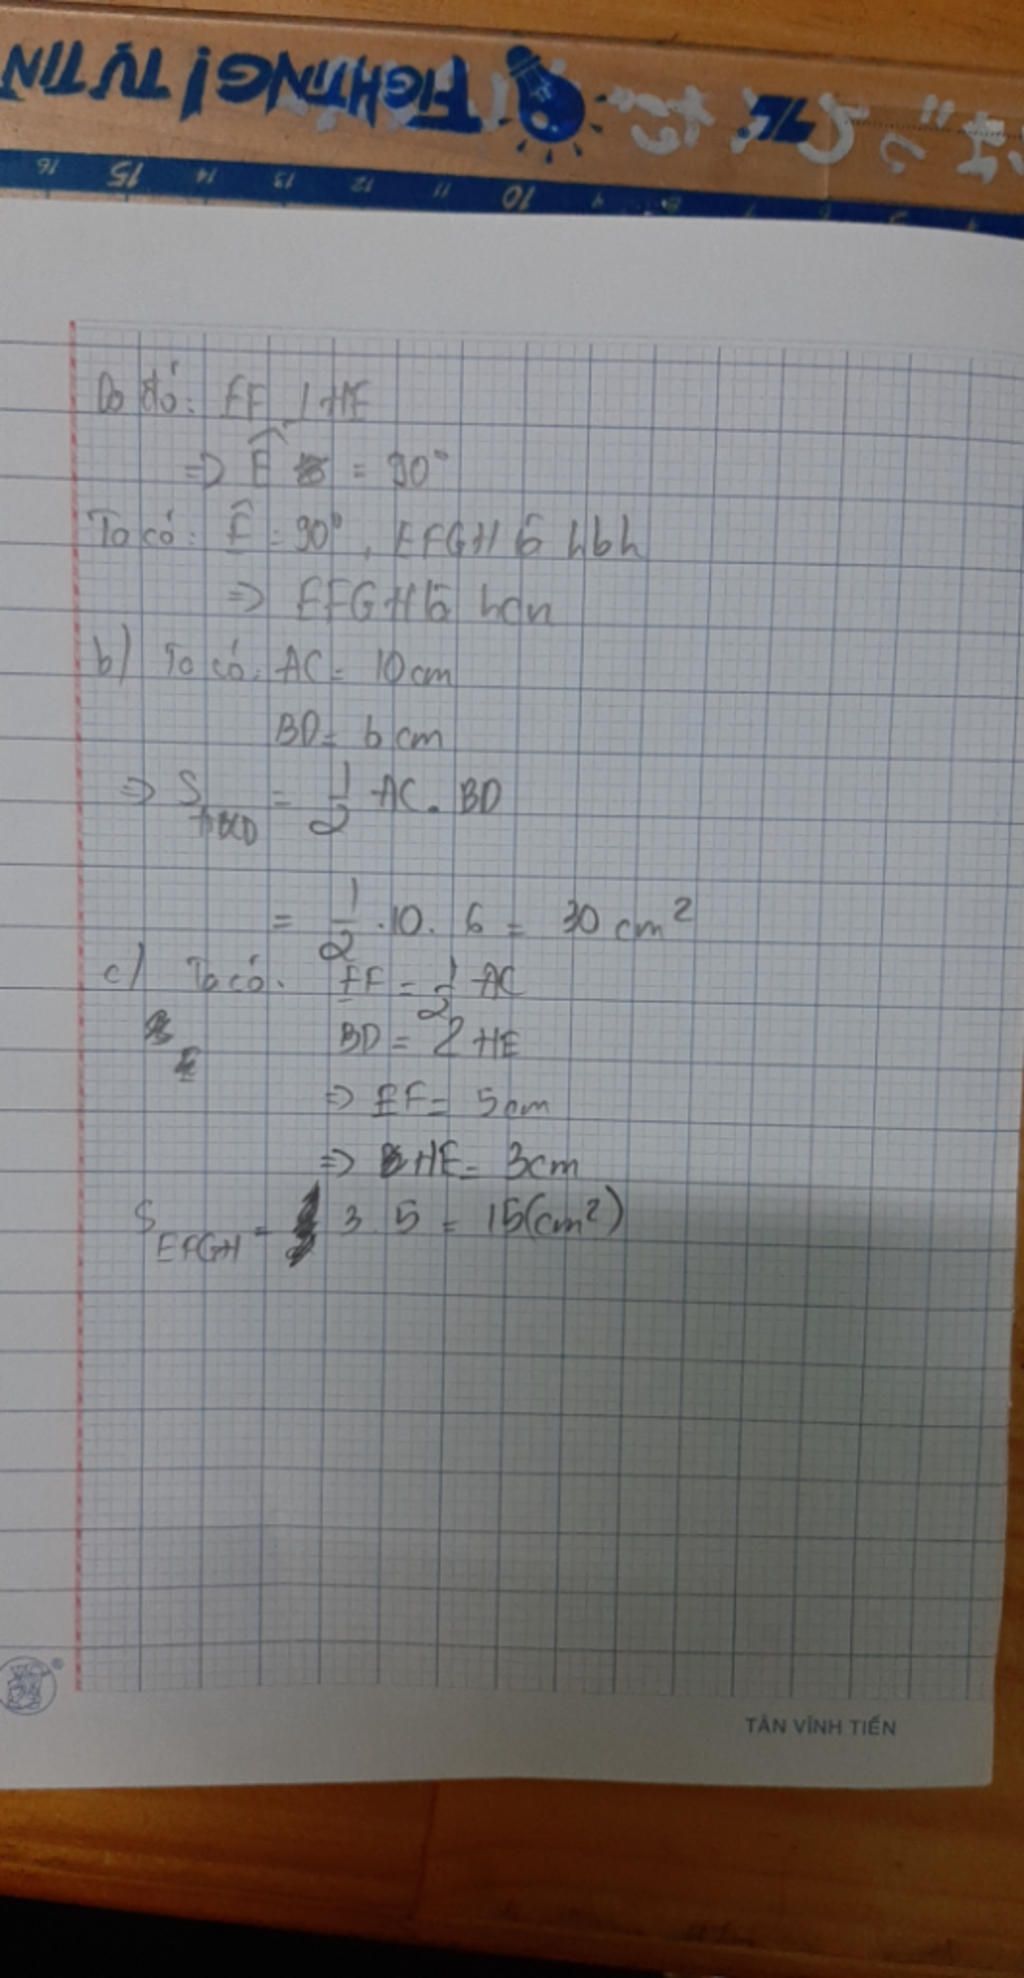 FIGHTING! TỰ TIN
16 15 14 13 12 11 10 9 8 7 6 5
Do đó: EF ⊥ HE
=> Ê = 90°
Ta có: Ê = 90°, EFGH là hbh
=> EFGH là hcn
b) Ta có: AC = 10cm
BD = 6 cm
=> S_ABCD = 1/2 AC. BD
= 1/2 .10. 6 = 30 cm²
c) Ta có: EF = 1/2 AC
BD = 2 HE
=> EF = 5cm
=> HE = 3cm
S_EFGH = 3 5 = 15(cm²)
TÂN VĨNH TIẾN